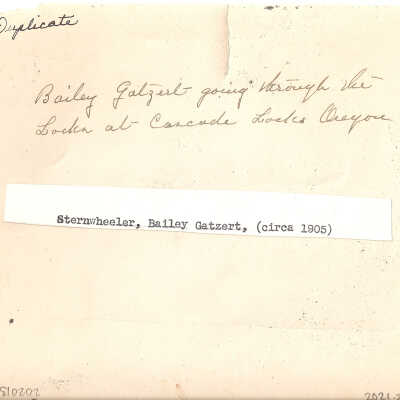 Duplicate
Bailey Gatzert going through the
Locks at Cascade Locks Oregon
Sternwheeler, Bailey Gatzert, (circa 1905)